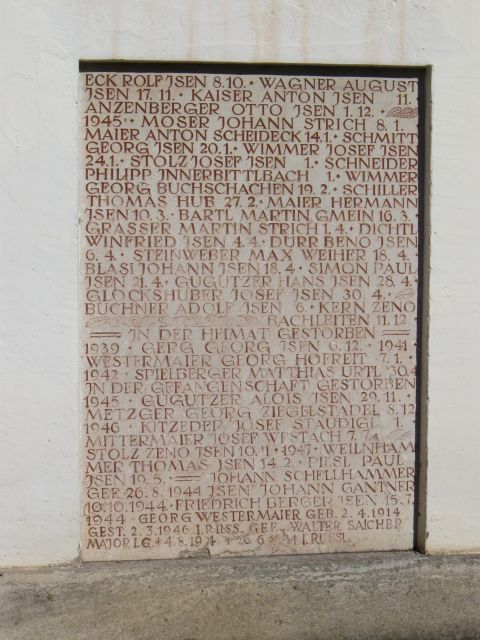 ECK ROLF JSEN 8.10. · WAGNER AUGUST
JSEN 17.11. · KAISER ANTON JSEN 11.
ANZENBERGER OTTO JSEN 1.12. ·
1945 · MOSER JOHANN STRICH 8.1.
MAIER ANTON SCHEIDECK 14.1 · SCHMITT
GEORG JSEN 20.1. · WIMMER JOSEF JSEN
24.1. · STOLZ JOSEF JSEN 1. · SCHNEIDER
PHILIPP JNNERBITTLBACH 1. · WIMMER
GEORG BUCHSCHACHEN 19.2. · SCHILLER
THOMAS HUB 27.2. · MAIER HERMANN
JSEN 10.3. · BARTL MARTIN GMEIN 16.3.
GRASSER MARTIN STRICH 1.4. · DICHTL
WINFRIED JSEN 4.4. · DÜRR BENO JSEN
6.4. · STEINWEBER MAX WEIHER 18.4.
BLASI JOHANN JSEN 18.4. · SIMON PAUL
JSEN 21.4. · GUGUTZER HANS JSEN 28.4.
GLOCKSHUBER JOSEF JSEN 30.4. ·
BÜCHNER ADOLF JSEN 6. · KERN ZENO
BACHLEITEN 11.12.
JN DER HEIMAT GESTORBEN
1939 · GEORG JSEN 6.12. · 1941
WESTERMAIER GEORG HOFREIT 7.1.
1942 · SPIELBERGER MATTHIAS URTL 30.4.
JN DER GEFANGENSCHAFT GESTORBEN
1945 · GUGUTZER ALOIS JSEN 29.11. ·
METZGER GEORG ZIEGELSTADEL 8.12
1946 · KITZEDER JOSEF STAUDIGL 1.
MITTERMAIER JOSEF 7.7.
STOLZ ZENO JSEN 10.1. · 1947 · WEILNHAM
MER THOMAS JSEN 14.2. · PIESL PAUL
JSEN 19.5. JOHANN SCHELLHAMMER
GEF. 26.8.1944 JSEN JOHANN GANTNER
10.10.1944 · FRIEDRICH BERGER JSEN 15.7.
1944 · GEORG WESTERMAIER GEB. 2.4.1914
GEST. 2.3.1946 I. RUSS. GEF. WALTER SAICHER
MAJOR I.G. I. RUSSL.